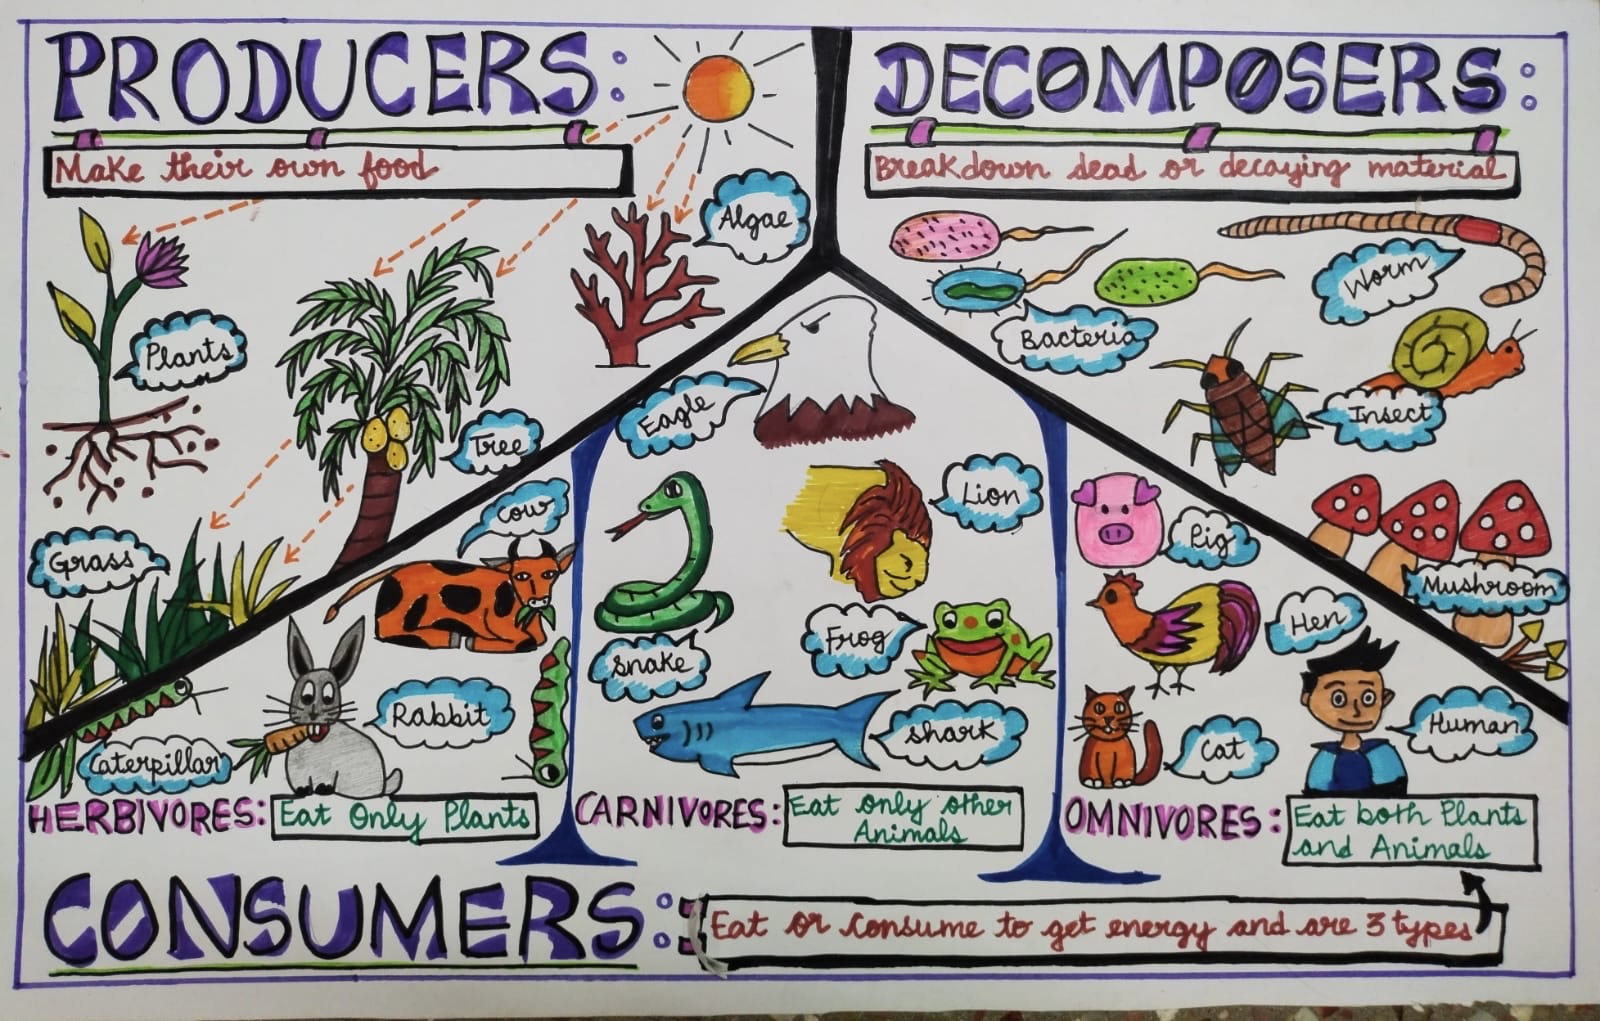 PRODUCERS:
Make their own food
Algae
Plants
Tree
Grass
DECOMPOSERS:
Breakdown dead or decaying material
Worm
Bacteria
Insect
Mushroom
Cow
Rabbit
Caterpillar
HERBIVORES:
Eat Only Plants
Eagle
Lion
Snake
Frog
shark
CARNIVORES:
Eat only other
Animals
Pig
Hen
Cat
Human
OMNIVORES:
Eat both Plants
and Animals
CONSUMERS:
Eat or consume to get energy and are 3 types